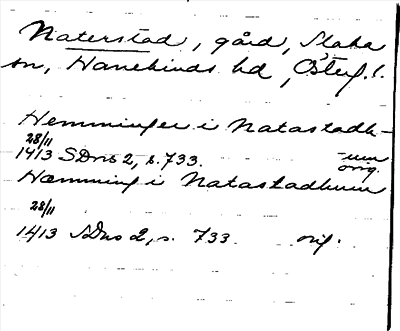 Naterstad, gård, Slaka
sn, Hanekinds hd, Österg.l.
Hemminger i Natastadh-
um
28/11
1413 SDns 2, s. 733. orig.
Hæmming i Natastadhum
28/11
1413 SDns 2, s. 733. orig.